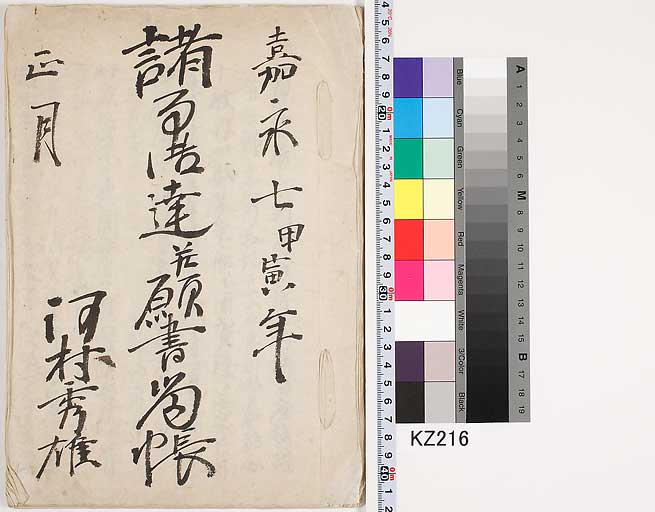 嘉永七甲寅年
諸届達并願書留帳
正月
河村秀雄
KZ216
Blue
Cyan
Green
Yellow
Red
Magenta
White
3/Color
Black
A
1
2
3
4
5
6
M
8
9
10
11
12
13
14
15
B
17
18
19